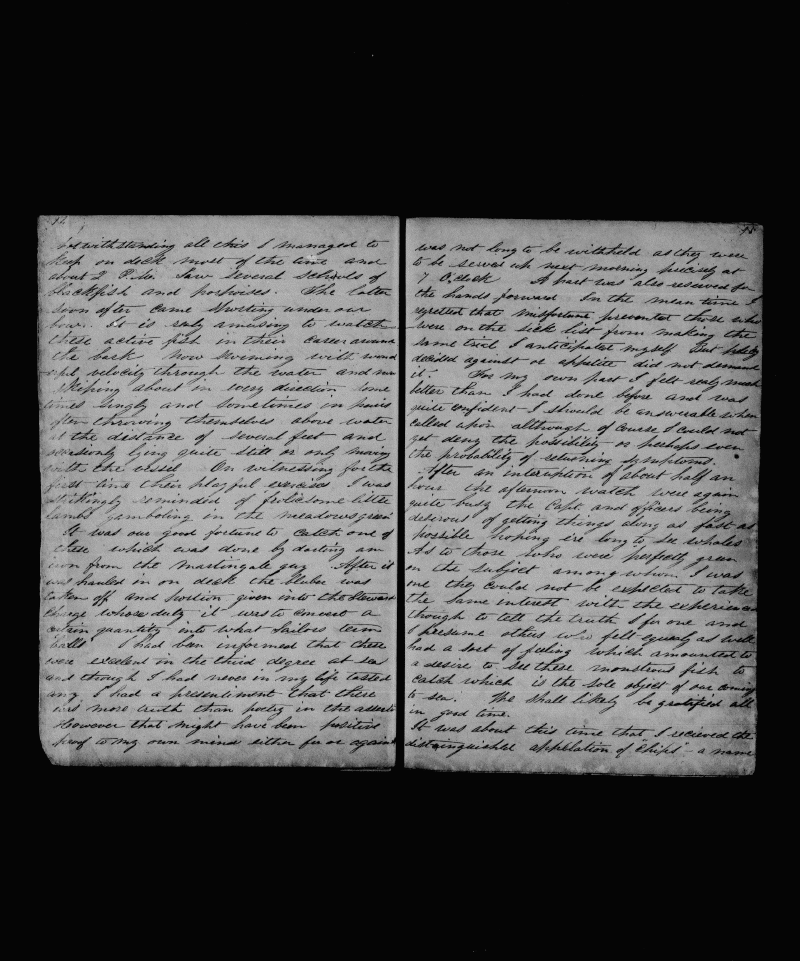 14
Notwithstanding all this I managed to
keep on deck most of the time and
about 2 P.M. Saw several schools of
blackfish and porpoises. The latter
soon after came Shooting under our
bow. it is realy amusing to watch
these active fish in their career around
the bark now swiming with wond
erful velocity through the water and now
skiping about in every direction some
times singly and sometimes in pairs
often throwing themselves above water
at the distance of several feet and
occasionly lying quite still or only moving
with the vessel On witnessing for the
first time their playful exercises I was
strikingly reminded of frolicsome little
lambs gamboling in the meadows green
It was our good fortune to catch one of
these which was done by darting an
iron from the martingale guy After it
was hauled in on deck the blubber was
taken off and portion given into the Stewards
charge whose duty it was to convert a
certain quantity into what Sailors term
balls I had ben informed that these
were excellent in the third degree at sea
and though I had never in my life tasted
any I had a presentiment that there
was more truth than poetry in the assertion
However that might have been positive
proof to my own mind either for or against
15
was not long to be withheld as they were
to be served up next morning precisely at
7 O,clock A part was also reserved for
the hands forward In the mean time I
regretted that misfortune prevented those who
were on the sick list from making the
same trial I anticipated myself But
decided against or appetite did not demand
it. For my own part I felt realy much
better than I had done before and was
quite confident I should be answerable when
called upon although of course I could not
yet deny the possibility or perhaps even
the probability of returning symptoms.
After an interuption of about half an
hour the afternoon watch were again
quite busy the Capt. and officers being
desirous of getting things along as fast as
possible hoping ere long to see whales
As to those who were perfectly green
on the subject among whom I was
one they could not be expected to take
the same interest with the experienced
though to tell the truth I for one and
I presume others who felt equaly as well
had a sort of feeling which amounted to
a desire to see these monstrous fish to
catch which is the sole object of our coming
to sea. We shall likely be gratified all
in good time.
It was about this time that I recieved the
distinguishable appelation of "Chips" - a name